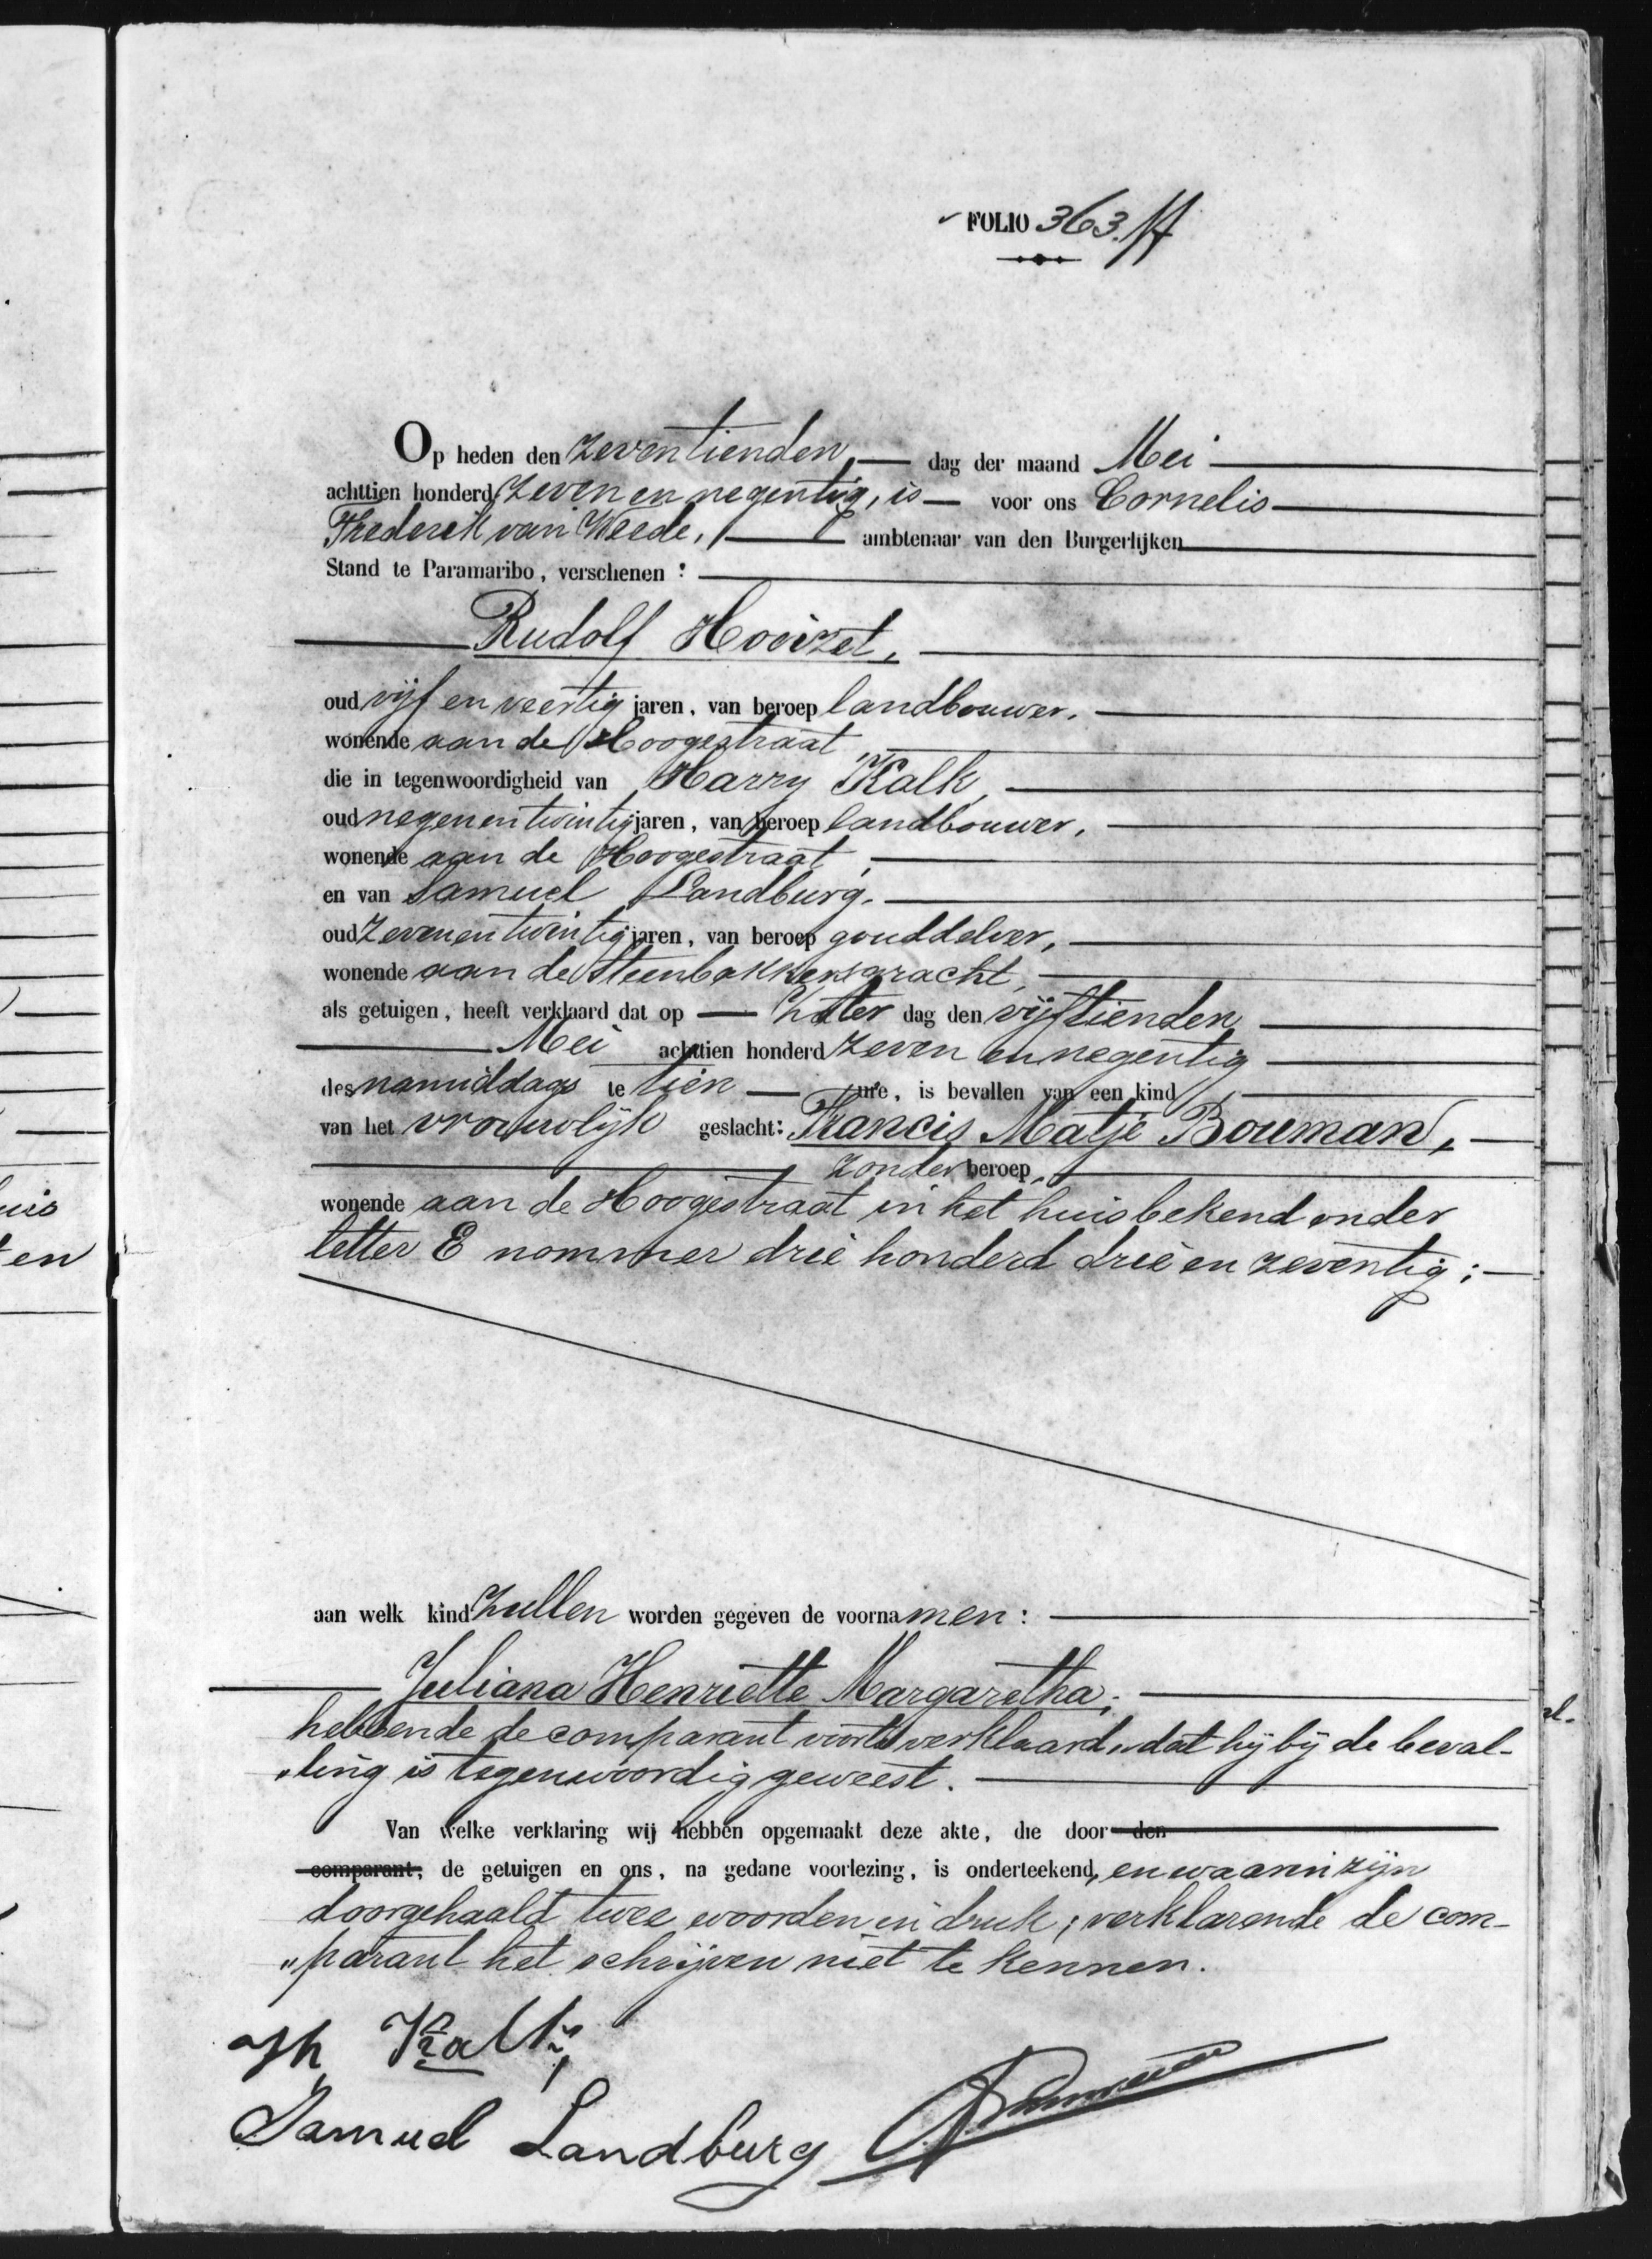 FOLIO 363.
Op heden den zeventienden, dag der maand Mei
achttien honderd zeven en negentig, is voor ons Cornelis
Frederik van Weede, ambtenaar van den Burgerlijken
Stand te Paramaribo, verschenen:
Rudolf Hooizet,
oud vijf en veertig jaren, van beroep landbouwer,
wonende aan de Hoogestraat,
die in tegenwoordigheid van Harry Kalk,
oud negenentwintig jaren, van beroep landbouwer,
wonende aan de Hoogestraat,
en van Samuel Landburg,
oud zevenentwintig jaren, van beroep gouddelver,
wonende aan de Steenbakkersgracht,
als getuigen, heeft verklaard dat op Zaterdag den vijftienden
Mei achttien honderd zeven en negentig
des namiddags te tien ure, is bevallen van een kind
van het vrouwlijk geslacht: Francis Matje Bouman,
zonder beroep,
wonende aan de Hoogestraat in het huis bekend onder
letter E nommer drie honderd drie en zeventig;
aan welk kind zullen worden gegeven de voornamen:
Juliana Henriette Margaretha;
hebbende de comparant voorts verklaard „dat hij bij de beval-
„ling is tegenwoordig geweest.
Van welke verklaring wij hebben opgemaakt deze akte, die door den
comparant, de getuigen en ons, na gedane voorlezing, is onderteekend, en waarin zijn
doorgehaald twee woorden in druk; verklarende de com-
„parant het schrijven niet te kennen.
H Kalk
Samuel Landburg
uis
en